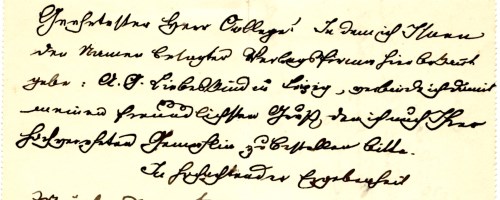 Geehrtester Herr College! Indem ich Ihnen
den Namen besagter Verlagsfirma hier bekannt
gebe: A. G. Liebeskind in Leipzig, verbinde ich damit
meinen freundlichsten Gruß, den ich auch Ihrer
hochverehrten Gemahlin zu bestellen bitte.
In hochachtender Ergebenheit